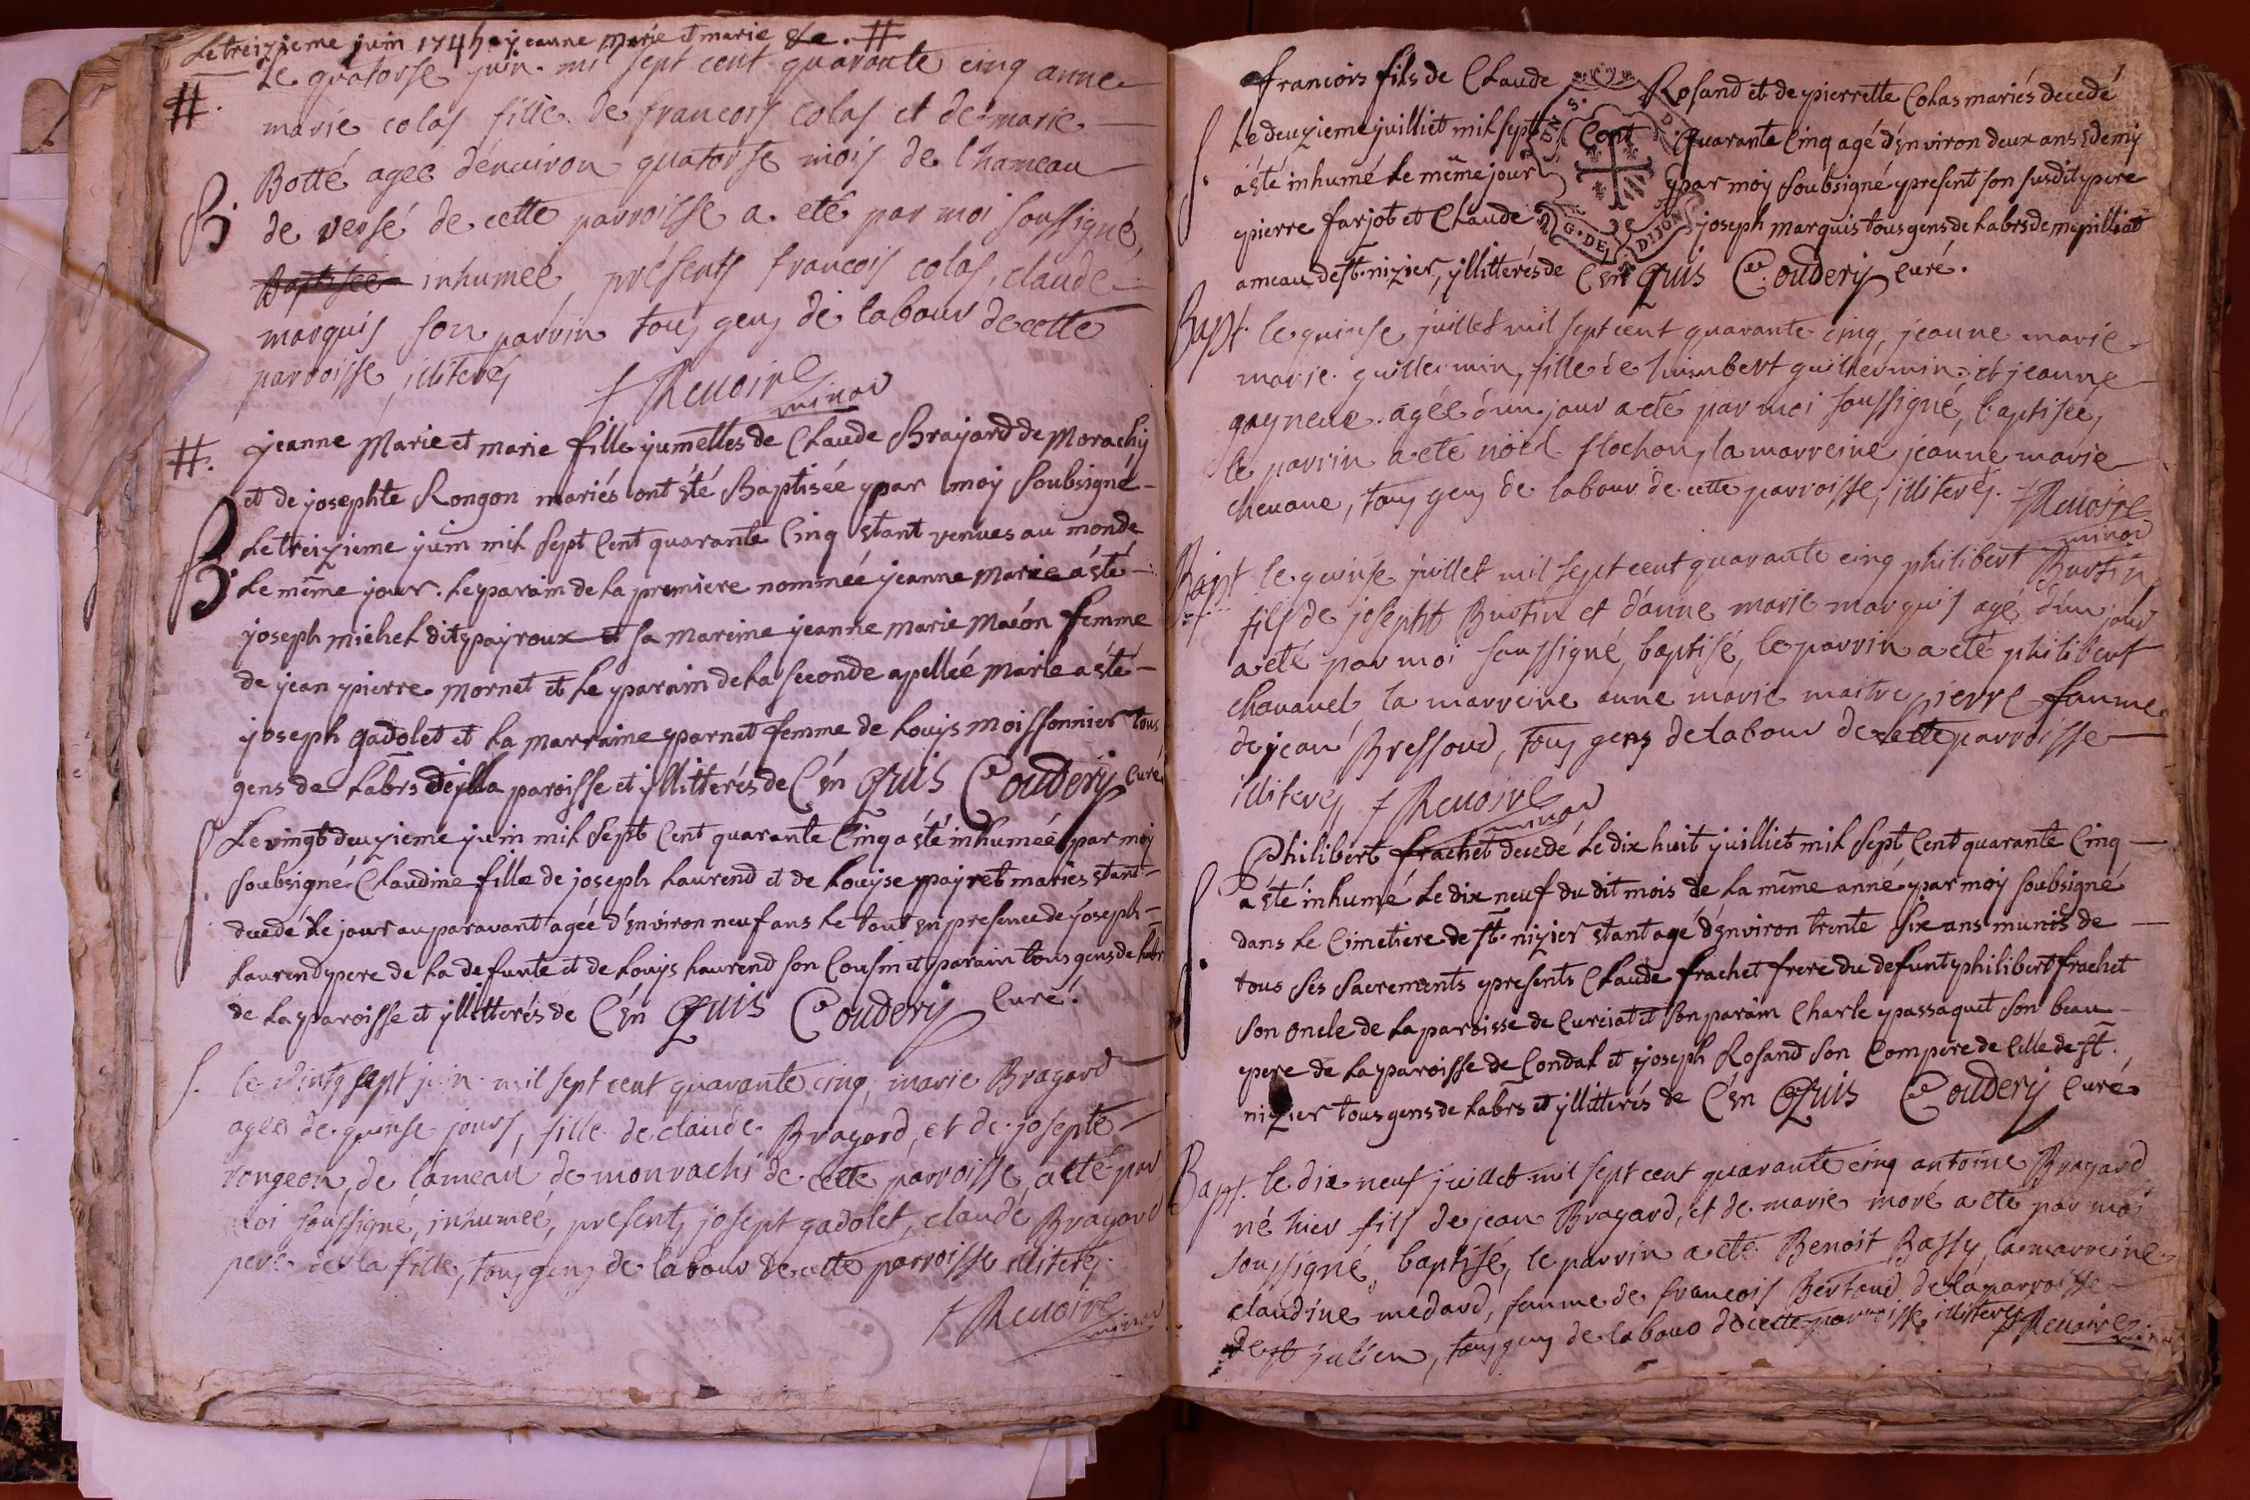 Le treizieme juin 1745 jeanne marie et marie &c. #
#. Le quatorse juin mil sept cent quarante cinq anne
marie colas fille de francois colas et de marie
Botté agee dénuiron quatorse mois de lhameau
de versé de cette parroisse a eté par moi soussigné,
Baptisée inhumee, présents francois colas, claude
marquis son parrin tous gens de labour de cette
parroisse, illiterés
f Renoire
minor
#. jeanne Marie et marie fille jumelles de Claude Brajard de Morachy
et de josephte Rongon mariés ont été Baptisée par moy soubsigné
B. Le treizieme juin mil sept Cent quarante Cinq etant venues au monde
Le même jour. Le parain de la premiere nommée jeanne Marie a été
joseph michel dit payroux et sa mareine jeanne marie Maeón femme
de jean pierre mornet et Le parain de La seconde apelleé Marie a été
joseph gadolet et La marraine parnet femme de Louys moissonnier tous
gens de Labrs de ylla paroisse et yllitterés de C en Quis Coudery Curé
S. Le vingt deuzieme juin mil sept Cent quarante Cinq a été inhumeé par moy
soubsigné Claudine fille de joseph Laurend et de Louyse payret mariés etant
decedé Le jour auparavant agée d'environ neuf ans Le tout en presence de joseph
Laurend pere de La defunte et de Louys Laurend son Cousin et parain tous gens de Labr
de La paroisse et yllitterés de C en Quis Coudery Curé.
S. le vintg sept juin mil sept cent quarante cinq, marie Bragard
agee de quinse jours, fille de claude Bragard, et de josepte
rongeon, de lameau de monrachi de cette parroisse, a eté par
moi soussigné, inhumeé, presents josept gadolet, claude Bragard
pere de la fille, tous gens de labour de cette parroisse illiterés.
f Renoire
minor
francois fils de Claude Rosand et de pierrette Colas mariés decedé
S. Le deuzieme juilliet mil sept Cent Quarante Cinq agé d'environ deux ans & demy
a été inhumé Le même jour par moy soubsigné present son susdit pere
pierre farjot et Claude joseph marquis tous gens de Labrs de mepilliat
ameau de st. nizier, yllitterés de C en Quis Coudery Curé.
G. DE DIJON
Bapt. le quinse juillet mil sept cent quarante cinq, jeanne marie
marie guillermin, fille de humbert guilhermin et jeanne
gagneue agée d'un jour a eté par moi soussigné, baptisée,
le parrin a eté nöel flochon, la marreine jeanne marie
chevane, tous gens de labour de cette parroisse, illiterés. f Renoire
minor
Bapt le quinse juillet mil sept cent quarante cinq philibert Burtin
fils de josepht Burtin et d'anne marie marquis agé d'un jour
a eté par moi soussigné, baptisé, le parrin a eté philibert
chavanel la marreine anne marie maitrepierre fanme
de jean Bressoud, tous gens de labour de cette parroisse
illiterés f Renoire
minor
S. Philibert frachet decedé Le dix huit juilliet mil sept Cent quarante Cinq
a été inhumé Le dix neuf du dit mois de La même anné par moy soubsigné
dans Le Cimetiere de st. nizier etant agé d'environ trente six ans munis de
tous ses sacrements presents Claude frachet frere du defunt philibert frachet
son oncle de La paroisse de Curciat et son parain Charle passaquet son beau
pere de La paroisse de Condal et joseph Rosand son Compere de Celle de st.
nizier tous gens de Labrs et yllitterés de C en Quis Coudery Curé
Bapt. le dix neuf juillet mil sept cent quarante cinq antoine Bragard
né hier fils de jean Bragard, et de marie moré a eté par moi
soussigné, baptisé, le parrin a eté Benoit Bassy, la marreine
claudine medard, fanme de francois Bertaud de la parroisse
de st julien, tous gens de labour de cette parroisse illiterés f Renoire
minor